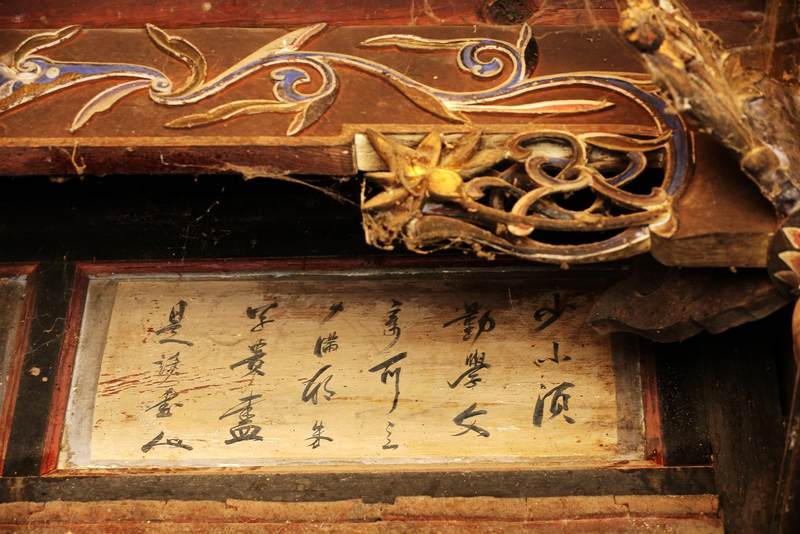 少小須
勤學文
章可立
身滿朝朱
紫貴盡
是讀書人